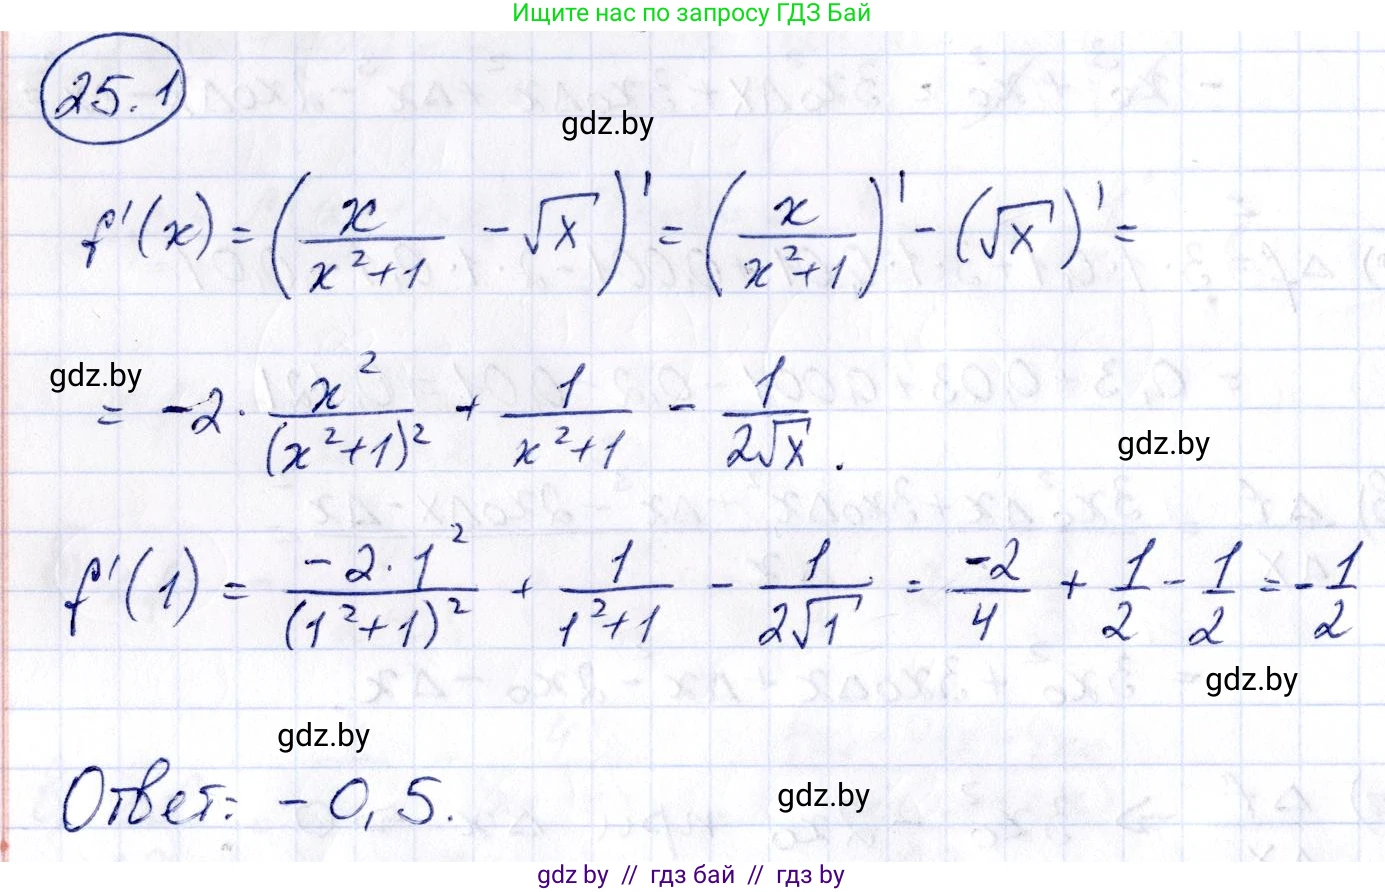 Ищите нас по запросу ГДЗ Бай
25.1
gdz.by
f'(x) = (x/(x²+1) - √x)' = (x/(x²+1))' - (√x)' =
gdz.by
= -2 · x²/(x²+1)² + 1/(x²+1) - 1/(2√x).
gdz.by
f'(1) = (-2·1²)/(1²+1)² + 1/(1²+1) - 1/(2√1) = -2/4 + 1/2 - 1/2 = -1/2
gdz.by
gdz.by
Ответ: -0,5.
gdz.by
gdz by // гдз бай // гдз by